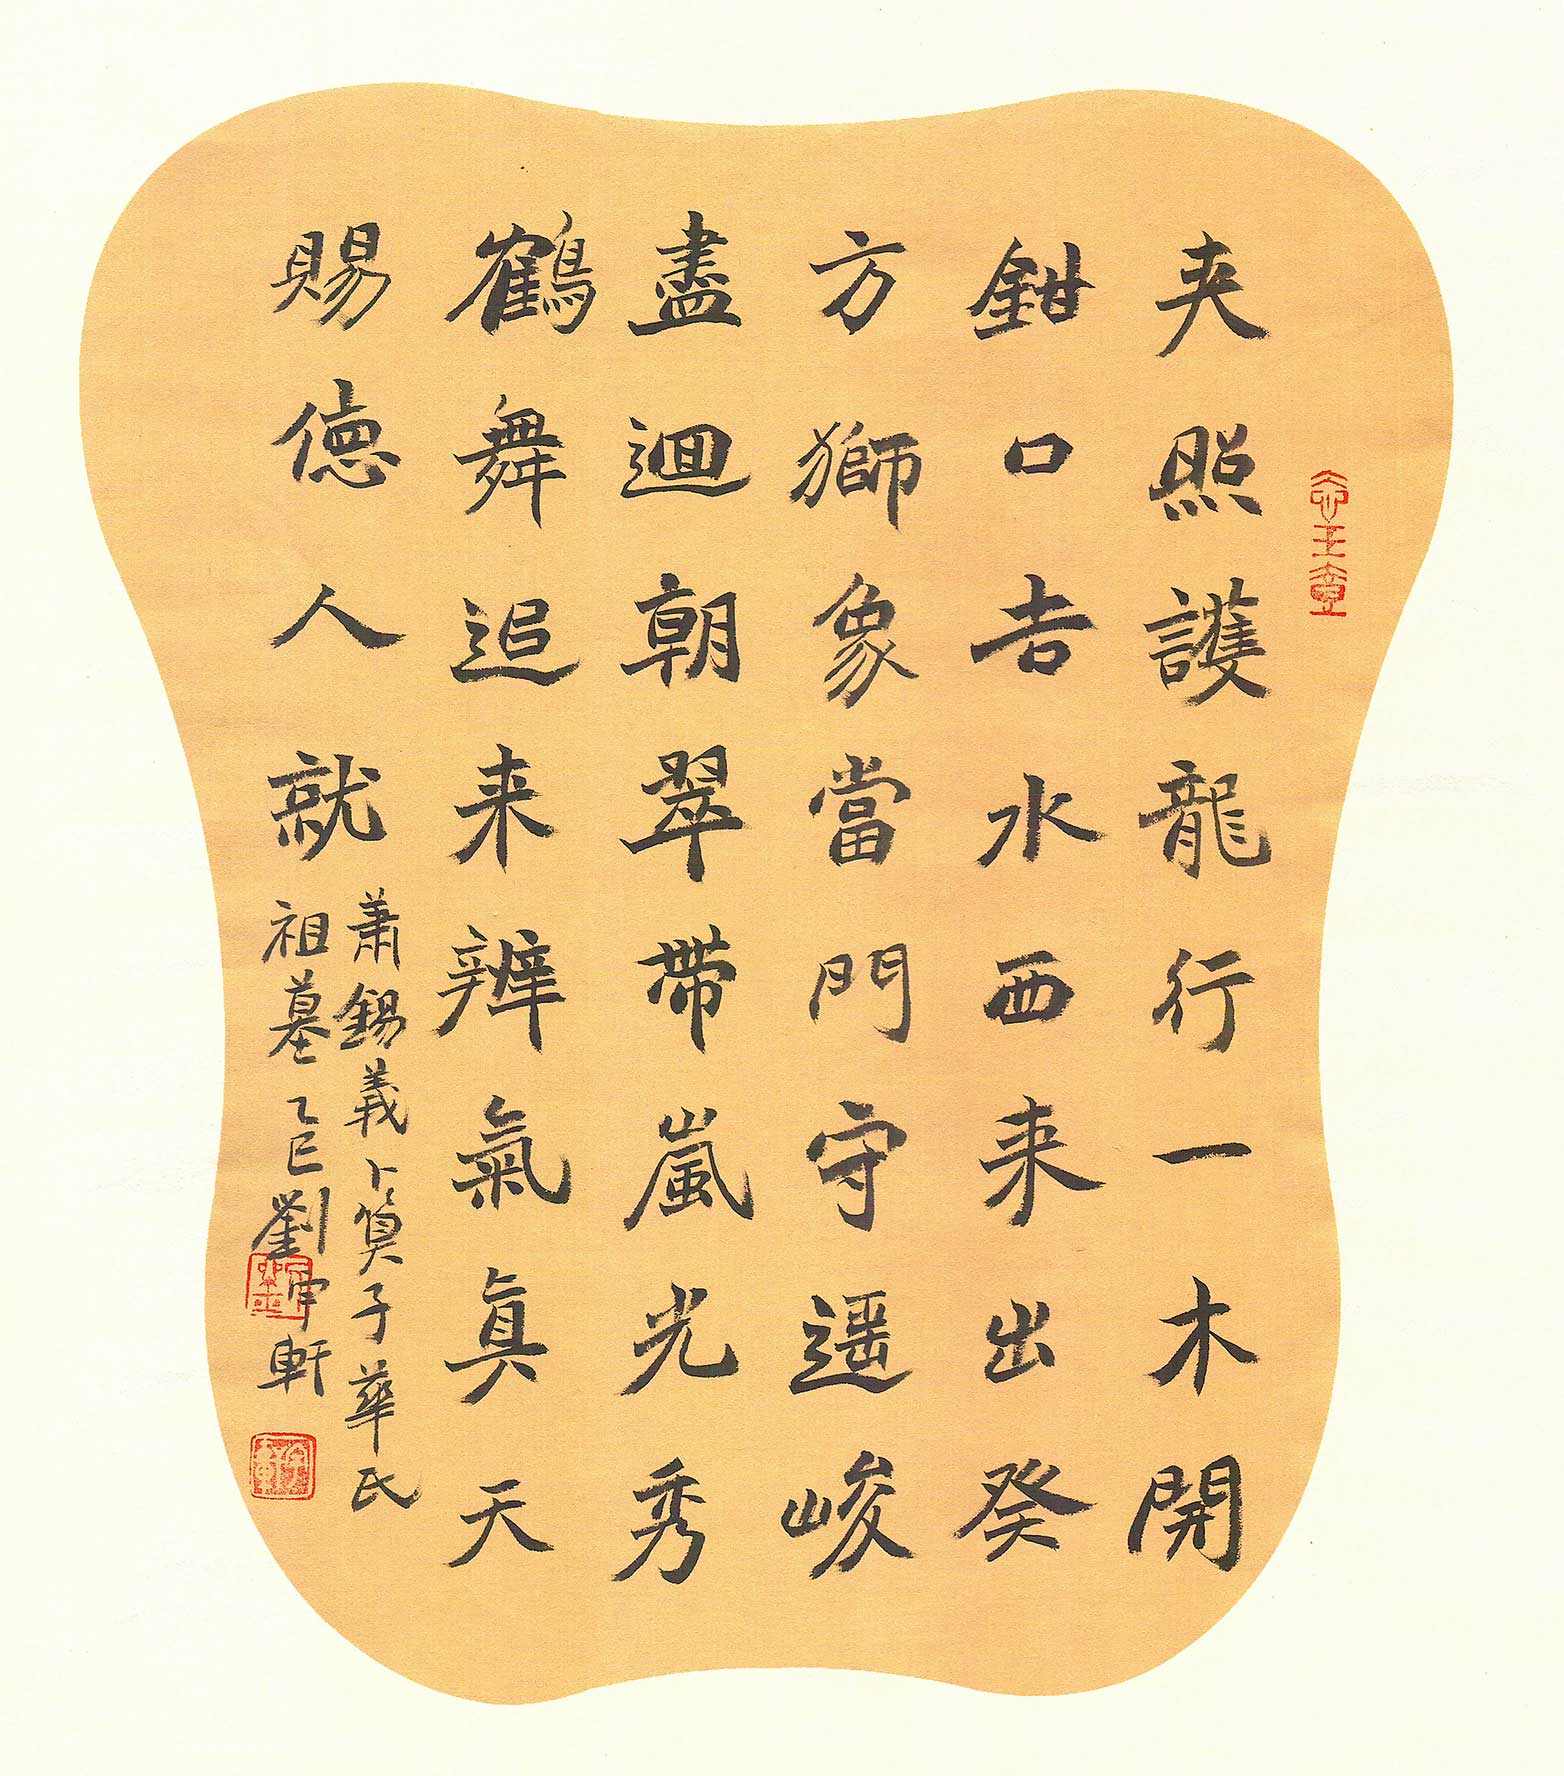 夾照護龍行一木開
鉗口吉水西来出癸
方獅象當門守遥峻
盡迴朝翠帶嵐光秀
鶴舞追来辨氣真天
賜德人就
蕭錫義卜葬子華氏
祖墓乙巳劉甲軒